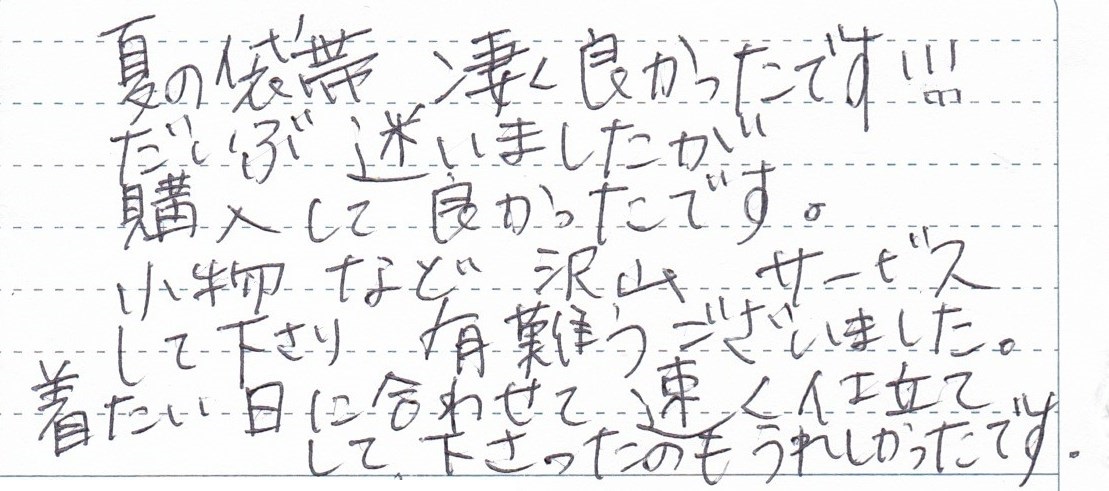 夏の袋帯 凄く良かったです!!!
だいぶ 迷いましたが
購入して 良かったです。
小物 など 沢山 サービス
して下さり 有難うございました。
着たい日に合わせて 速く仕立て
して 下さったのもうれしかったです.